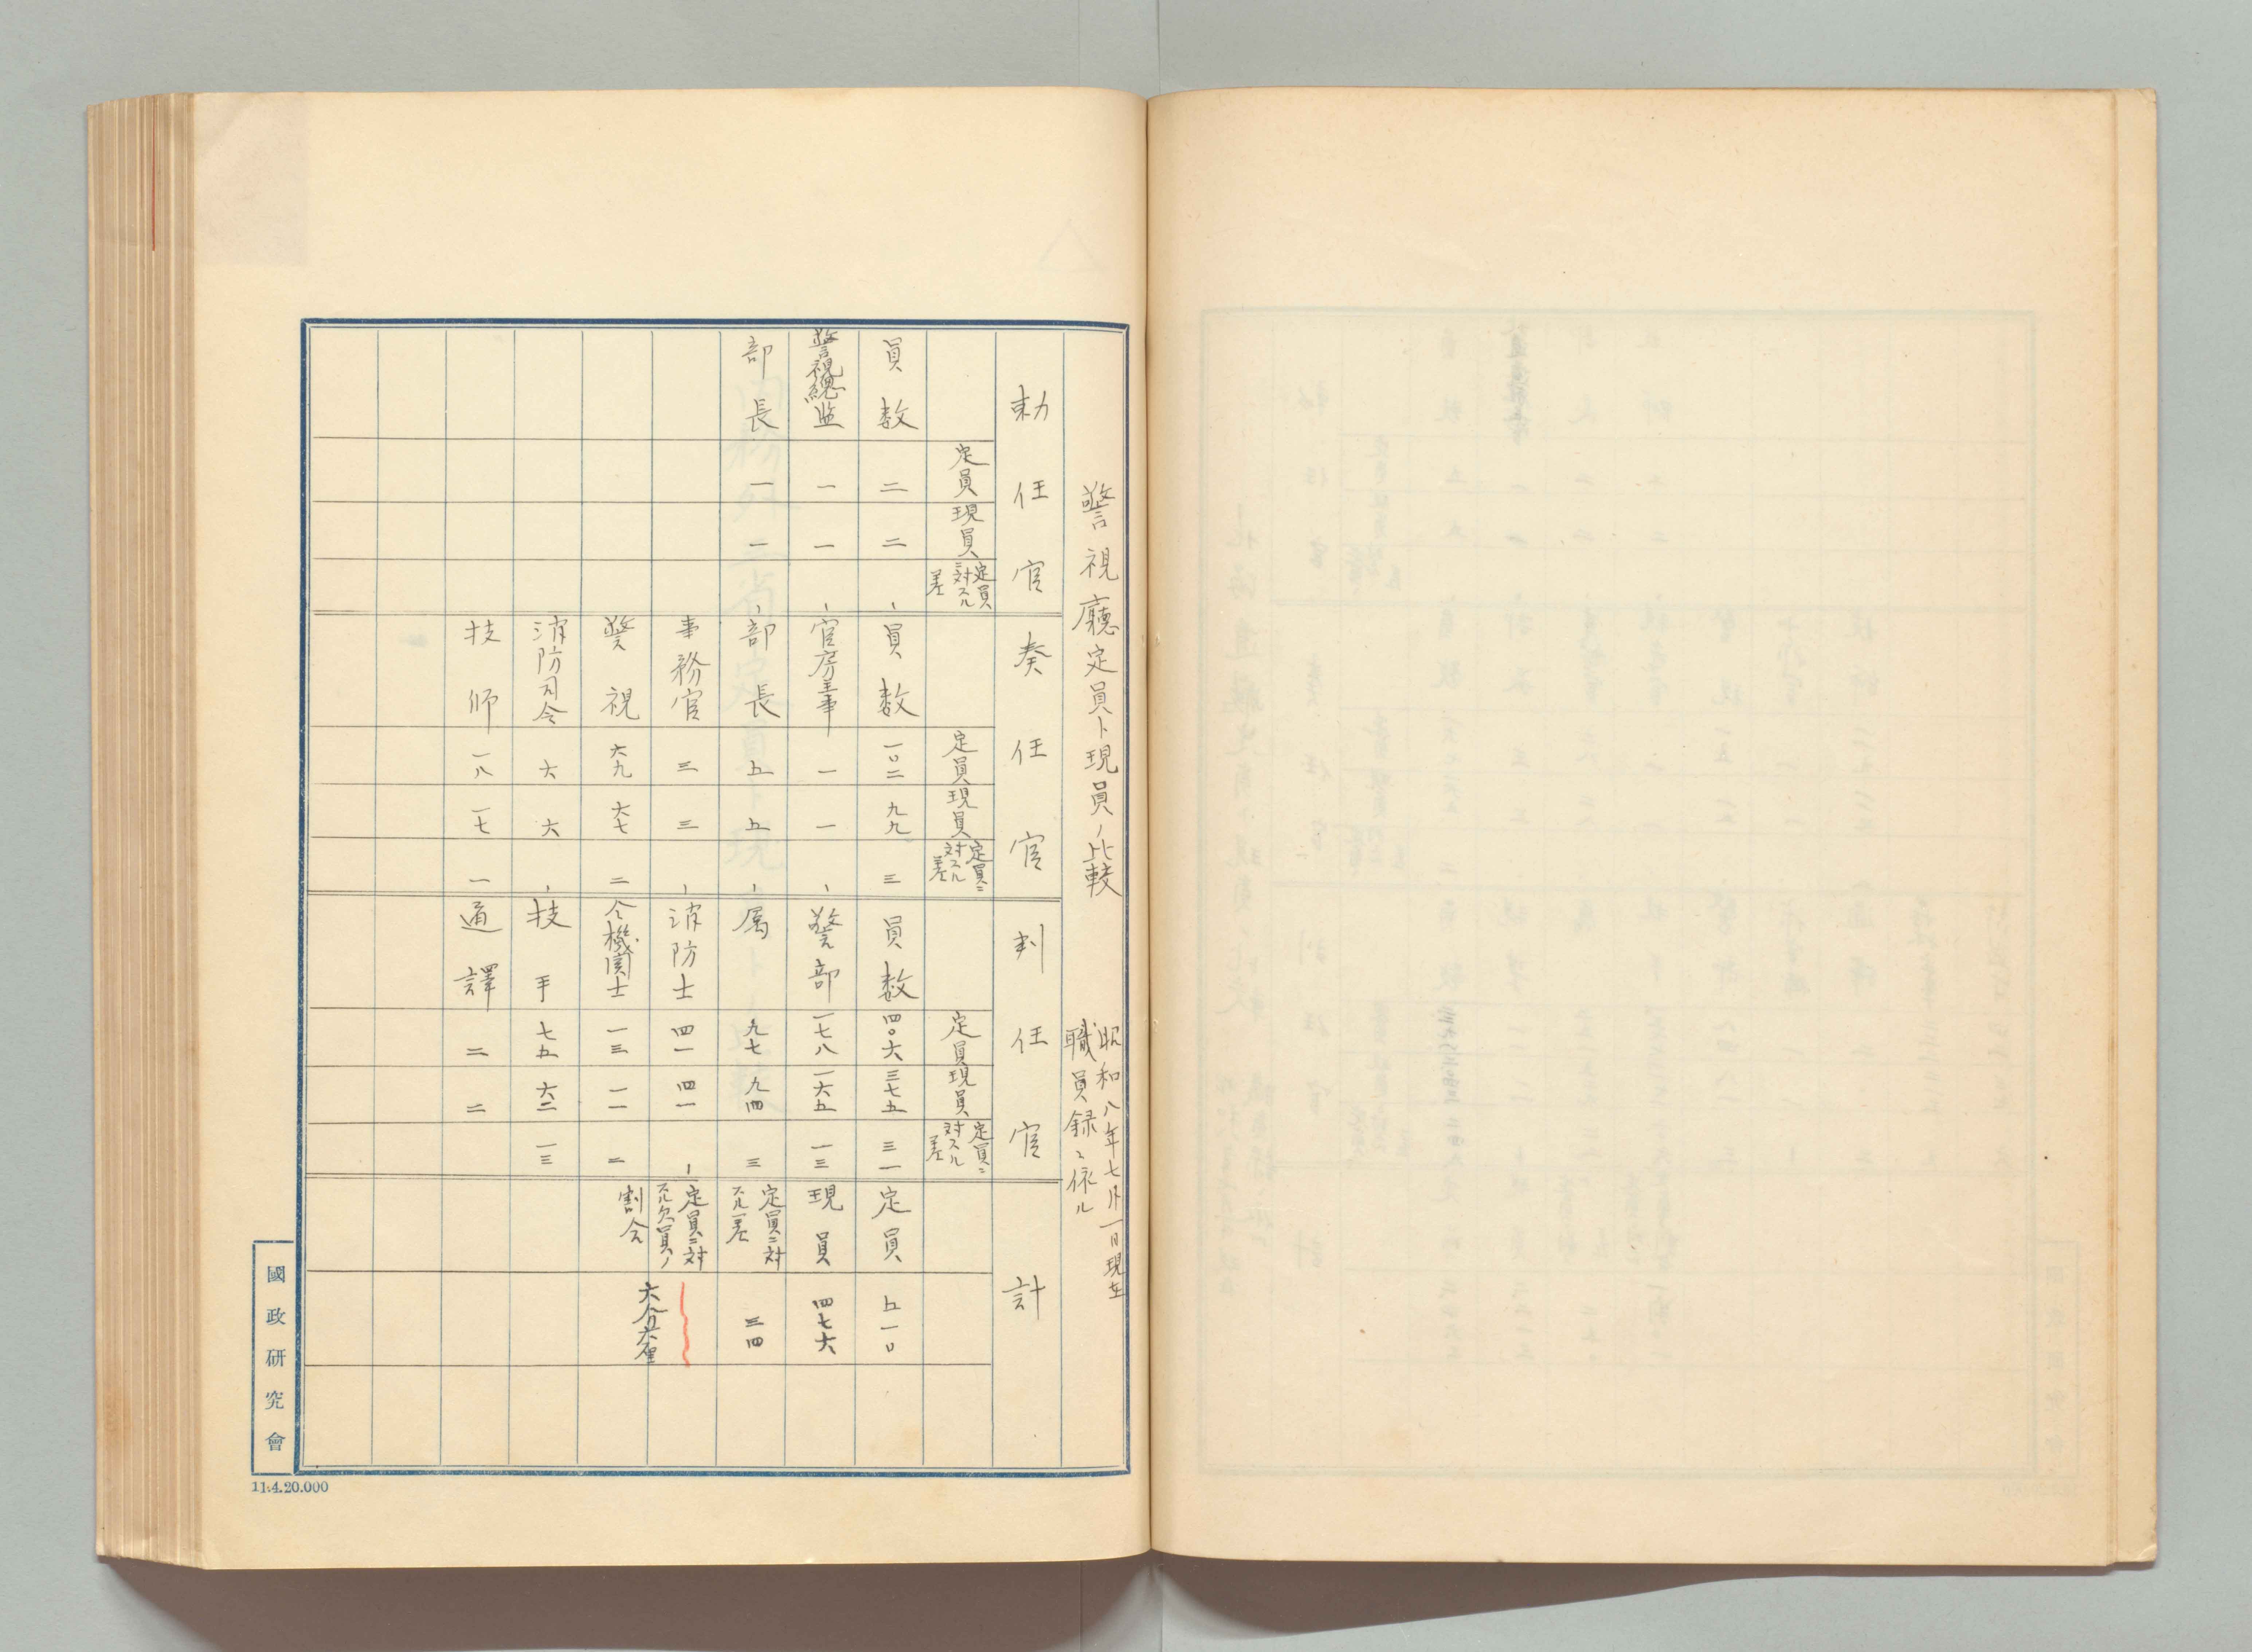 警視廳定員ト現員ノ比較
昭和八年七月一日現在
職員録ニ依ル
勅任官
奏任官
判任官
計
定員
現員
定員ニ対スル差
定員
現員
定員ニ対スル差
定員
現員
定員ニ対スル差
員数 二 二 、
員数 一〇二 九九 三
員数 四〇六 三七五 三一
定員 五一〇
警視總監 一 一 、
官房主事 一 一 、
警部 一七八 一六五 一三
現員 四七六
部長 一 一 、
部長 五 五 、
属 九七 九四 三
定員ニ対スル差 三四
事務官 三 三 、
消防士 四一 四一 、
定員ニ対スル欠員ノ割合 六分六厘
警視 六九 六七 二
仝機関士 一三 一一 二
消防司令 六 六 、
技手 七五 六二 一三
技師 一八 一七 一
通譯 二 二
國政研究會
11.4.20.000